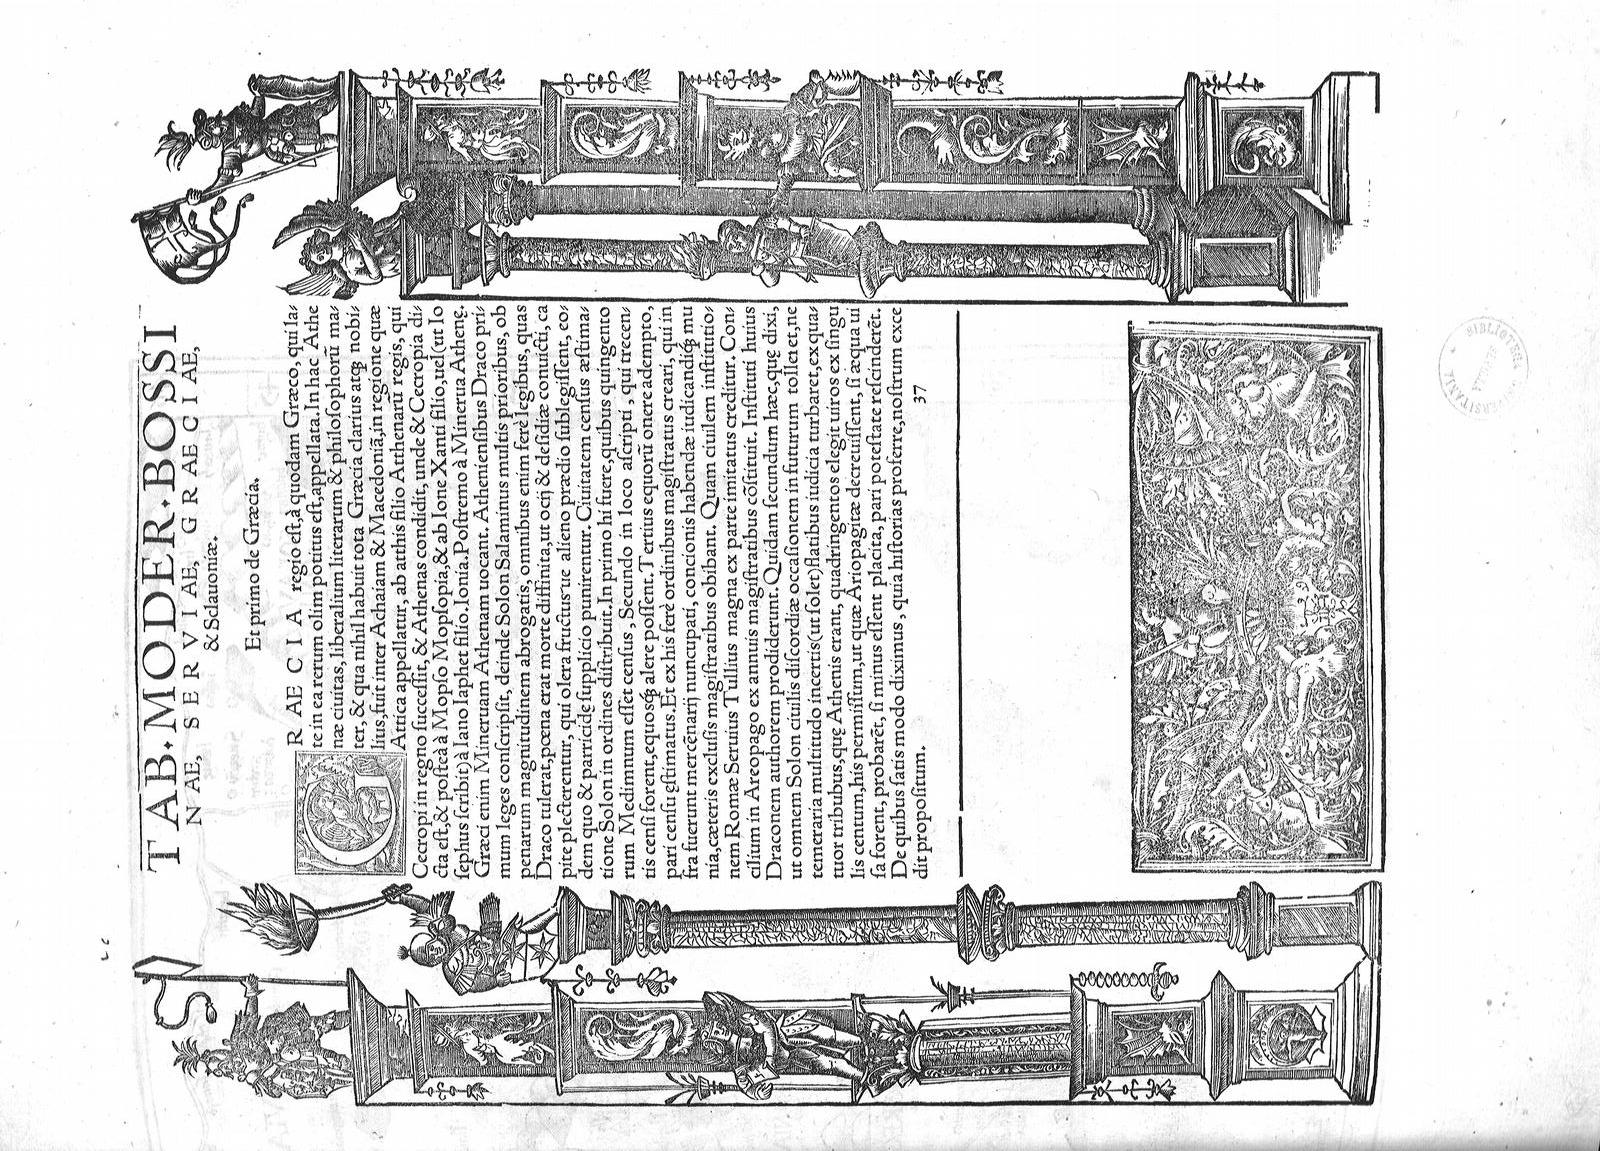 TAB. MODER. BOSSI
NAE, SERVIAE, GRAECIAE,
& Sclauoniæ.
Et primo de Græcia.
GRAECIA regio eſt, à quodam Græco, qui la⸗
te in ea rerum olim potitus eſt, appellata. In hac Athe
næ ciuitas, liberalium literarum & philoſophorũ ma⸗
ter, & qua nihil habuit tota Græcia clarius atqꝫ nobi⸗
lius, fuit inter Achaiam & Macedoniã, in regione quæ
Attica appellatur, ab atthis filio Atthenarũ regis, qui
Cecropi in regno ſucceſſit, & Athenas condidit, unde & Cecropia di⸗
cta eſt, & poſteà à Mopſo Mopſopia, & ab Ione Xanti filio, uel (ut Io
ſephus ſcribit) à Iano Iaphet filio. Ionia. Poſtremo à Minerua Athenę.
Græci enim Mineruam Athenam uocant. Athenienſibus Draco pri⸗
mum leges conſcripſit, deinde Solon Salaminus multis prioribus, ob
penarum magnitudinem abrogatis, omnibus enim ferè legibus, quas
Draco tulerat, pœna erat morte diffinita, ut ocij & deſidiæ conuicti, ca
pite plecterentur, qui olera fructus ue alieno prædio ſublegiſſent, eo⸗
dem quo & parricidę ſupplicio punirentur. Ciuitatem cenſus æſtima⸗
tione Solon in ordines diſtribuit. In primo hi fuere, quibus quingento
rum Medimnum eſſet cenſus, Secundo in loco aſcripti, qui trecen⸗
tis cenſi forent, equosqꝫ alere poſſent. Tertius equorũ onere adempto,
pari cenſu ęſtimatus. Et ex his ferè ordinibus magiſtratus creari, qui in
fra fuerunt mercẽnarij nuncupati, concionis habendæ iudicandiqꝫ mu
nia, cæteris excluſis magiſtratibus obibant. Quam ciuilem inſtitutio⸗
nem Romæ Seruius Tullius magna ex parte imitatus creditur. Con⸗
cilium in Areopago ex annuis magiſtratibus cõſtituit. Inſtituti huius
Draconem authorem prodiderunt. Quidam ſecundum hæc, quę dixi,
ut omnem Solon ciuilis diſcordiæ occaſionem in futurum tolleret, ne
temeraria multitudo incertis (ut ſolet) flatibus iudicia turbaret, ex qua⸗
tuor tribubus, quę Athenis erant, quadringentos elegit uiros ex ſingu
lis centum, his permiſſum, ut quæ Ariopagitæ decreuiſſent, ſi æqua ui
ſa forent, probarẽt, ſi minus eſſent placita, pari poteſtate reſcinderẽt.
De quibus ſatis modo diximus, quia hiſtorias proferre, noſtrum exce
dit propoſitum.
37
BIBLIOTHECA
UNIVERSITARIA